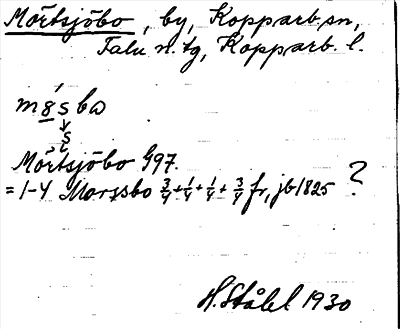 Mörtsjöbo, by, Kopparb. sn,
Falu n. tg, Kopparb. l.
m8́sbω
s
Mörtsjöbo G97.
= 1-4 Morssbo 3/4 + 1/4 + 1/4 + 3/4 fr, jb 1825 ?
H. Ståhl 1930